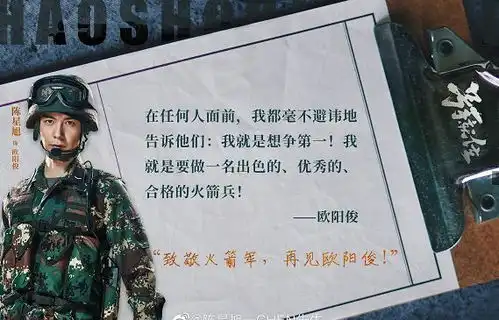 HAOSHOU
陈星旭
饰
欧阳俊
在任何人面前，我都毫不避讳地
告诉他们：我就是想争第一！我
就是要做一名出色的、优秀的、
合格的火箭兵！
——欧阳俊
“致敬火箭军，再见欧阳俊！”